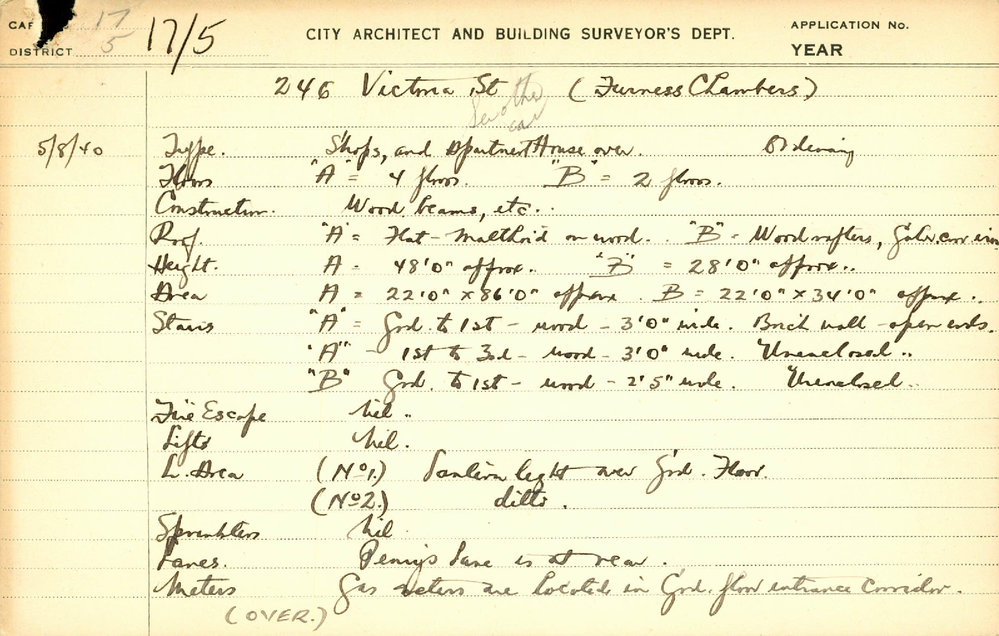 CITY ARCHITECT AND BUILDING SURVEYOR'S DEPT.
APPLICATION No.
17
5
17/5
DISTRICT
YEAR
246 Victoria St (Furness Chambers)
See other card
5/8/40 Type. Shops, and Apartment House over.
Floors "A" = 4 floors. "B" = 2 floors.
Construction. Wood beams, etc..
Roof. "A" = Flat - Malthoid on wood.. "B" - Wood rafters, Galv. corr. iron
Height. A - 48'0" approx.. "B" = 28'0" approx..
Area A = 22'0" x 86'0" approx. B = 22'0" x 34'0" approx..
Stairs "A" = Grd. to 1st - wood - 3'0" wide. Brick wall - open ends.
"A" - 1st to 3rd - wood - 3'0" wide. Unenclosed..
"B" Grd. to 1st - wood - 2'5" wide. Unenclosed..
Fire Escape Nil..
Lifts Nil.
L. Area (No1.) Lantern light over Grd. Floor.
(No2.) ditto.
Sprinklers Nil
Lanes. Penny's Lane is at rear.
Meters Gas meters are located in Grd. floor entrance corridor.
(OVER.)